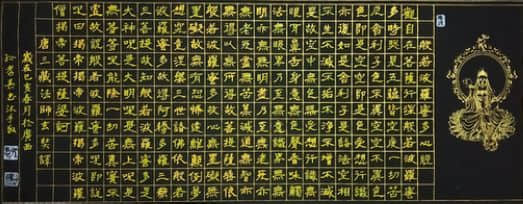 般若波羅蜜多心經
觀自在菩薩行深般若波羅蜜
多時照見五蘊皆空度一切苦
厄舍利子色不異空空不異色
色即是空空即是色受想行識
亦復如是舍利子是諸法空相
不生不滅不垢不淨不增不減
是故空中無色無受想行識無
眼耳鼻舌身意無色聲香味觸
法無眼界乃至無意識界無無
明亦無無明盡乃至無老死亦
無老死盡無苦集滅道無智亦
無得以無所得故菩提薩埵依
般若波羅蜜多故心無罣礙無
罣礙故無有恐怖遠離顛倒夢
想究竟涅槃三世諸佛依般若
波羅蜜多故得阿耨多羅三藐
三菩提故知般若波羅蜜多是
大神咒是大明咒是無上咒是
無等等咒能除一切苦真實不
虛故說般若波羅蜜多咒即說
咒曰揭帝揭帝般羅揭帝般羅
僧揭帝菩提薩婆訶
唐三藏法師玄奘譯
歲己亥春月於